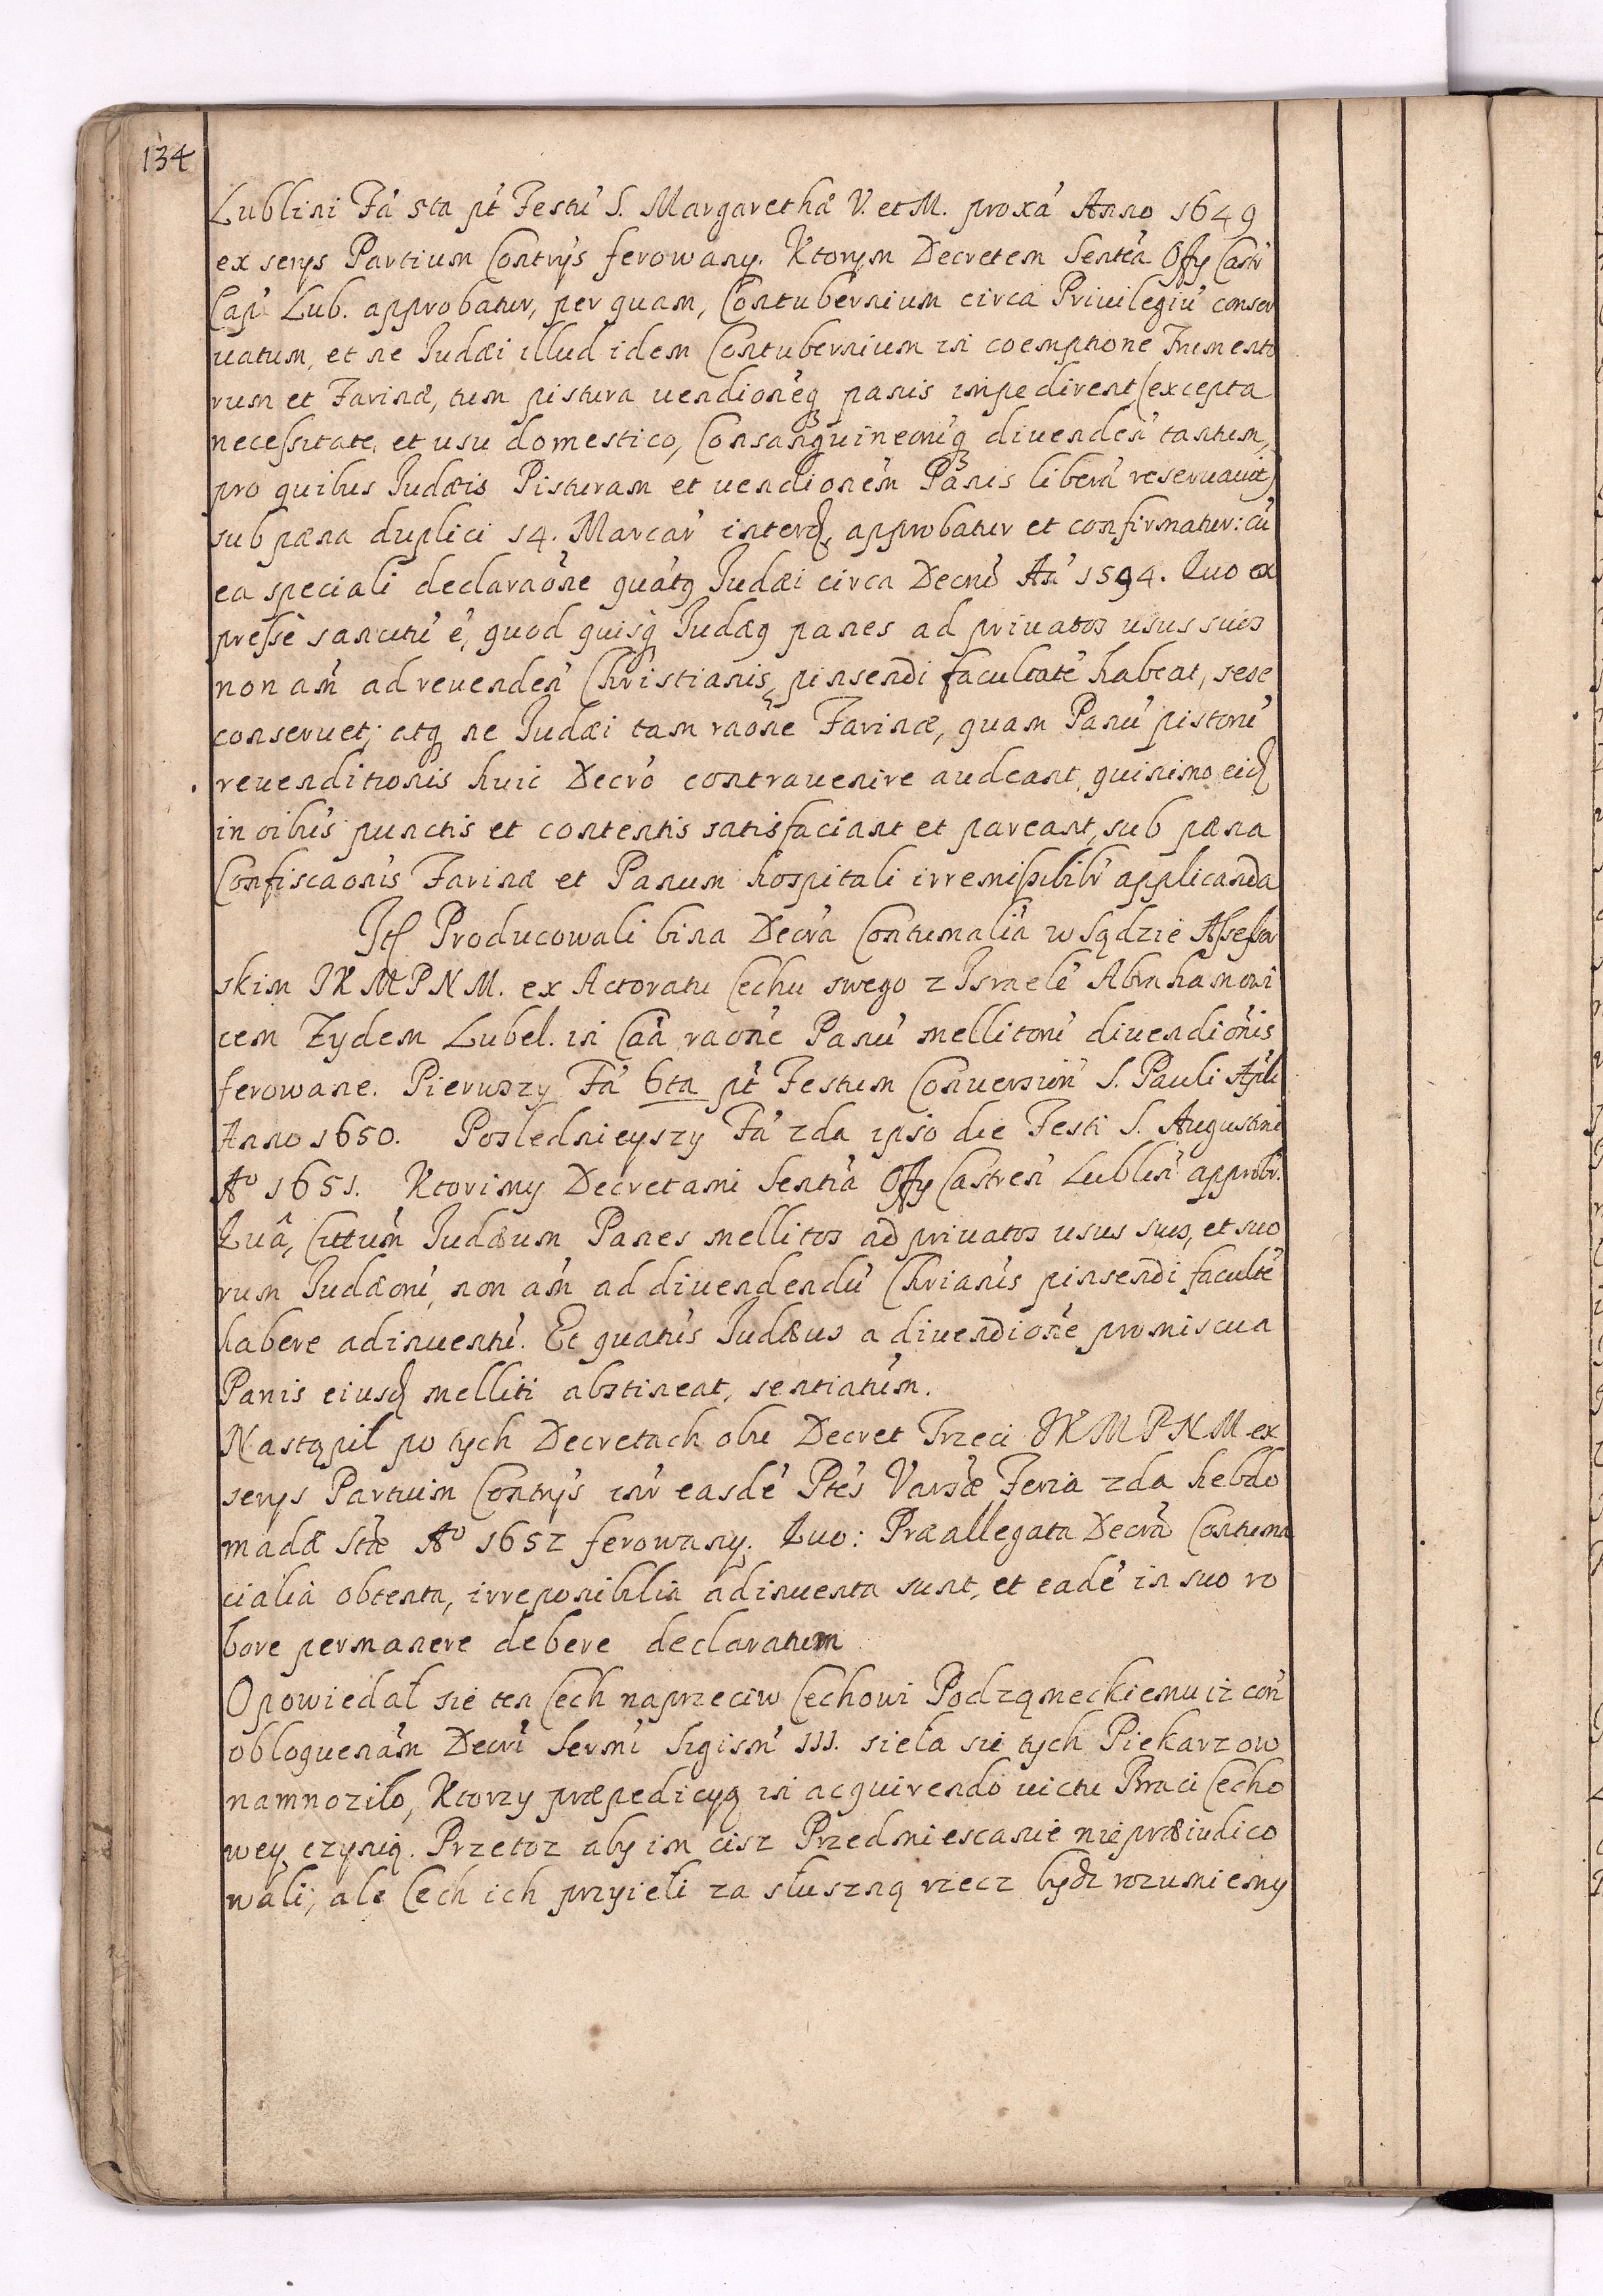 134
Lublini Fa' 5ta pt' Festu' S. Margarethæ V. et M. proxa' Anno 1649
ex serys Partium Contrys ferowany. Ktorym Decretem Sentẽa Offy Castr
Cap' Lub. approbatur, per quam, Contubernium circa Privilegiu' conser
uatum, et ne Judæi illud idem Contubernium in coemptione Frumento
rum et Farinæ, tum pistura uendioneq panis impedirent (excepta
necessitate, et usu domestico, Consanguineoru'q diuenden' tantum,
pro quibus Judæis Pisturam et uendionem Panis liberu' reseruauit)
sub pæna duplici 14. Marcar' interd, approbatur et confirmatur: cu'
ea speciali declaraõne quatq Judæi circa Decru' An' 1594. Quo ex
presse sancitu' e', quod quisq Judæq panes ad priuatos usus suos
non am' ad reuenden' Christianis, pinsendi facultate' habeat, sese
conseruet; atq ne Judæi tam raõne Farinæ, quam Panu' pistoru'
reuenditionis huic Decro' contrauenire audeant, quinimo eid
in oibus punctis et contentis satisfaciant et pareant, sub pæna
Confiscaonis Farinæ et Panum hospitali irremissibilr' applicanda
It Producowali bina Decra' Contumalia w Sądzie Assessor
skim JKMPNM. ex Actoratu Cechu swego z Israele' Abrahamowi
cem Zydem Lubel. in Caa' raone Panu' mellitoru' diuendionis
ferowane. Pierwszy Fa' 6ta pt' Festum Conuersion' S. Pauli Apli
Anno 1650. Poslednieyszy Fa' 2da ipso die Festi S. Augustini
A° 1651. Ktorimy Decretami Sentia' Offy Castren' Lublin' approbr.
Quâ, Cittum' Judæum Panes mellitos ad priuatos usus suos, et suo
rum Judæoru', non am' ad diuendendu' Chrianis pinsendi faculte'
habere adinuentu'. Et quatus Judæus a diuendione promiscua
Panis eiusd melliti abstineat, sentiatum.
Nastąpil po tych Decretach obu Decret Trzeci JKMPNM ex
serys Partium Contrys inr' easde' Ptes Varsæ Feria 2da hebdo
madæ Stæ A° 1652 ferowany. Quo: Præallegata Decra' Contuma
cialia obtenta, irreponibilia adinuenta sunt, et eade' in suo ro
bore permanere debere declaratum
Opowiedał sie ten Cech naprzeciw Cechowi Podząmeckiemu iz con'
obloquenam' Decri' Sermi' Sigism' III. sieła sie tych Piekarzow
namnozilo, Ktorzy præpedicyą in acquirendo uictu Braci Cecho
wey czynią. Przetoz aby im cisz Przedmiescanie nie præiudico
wali; ale Cech ich przyieli za słuszną rzecz bydz rozumiemy